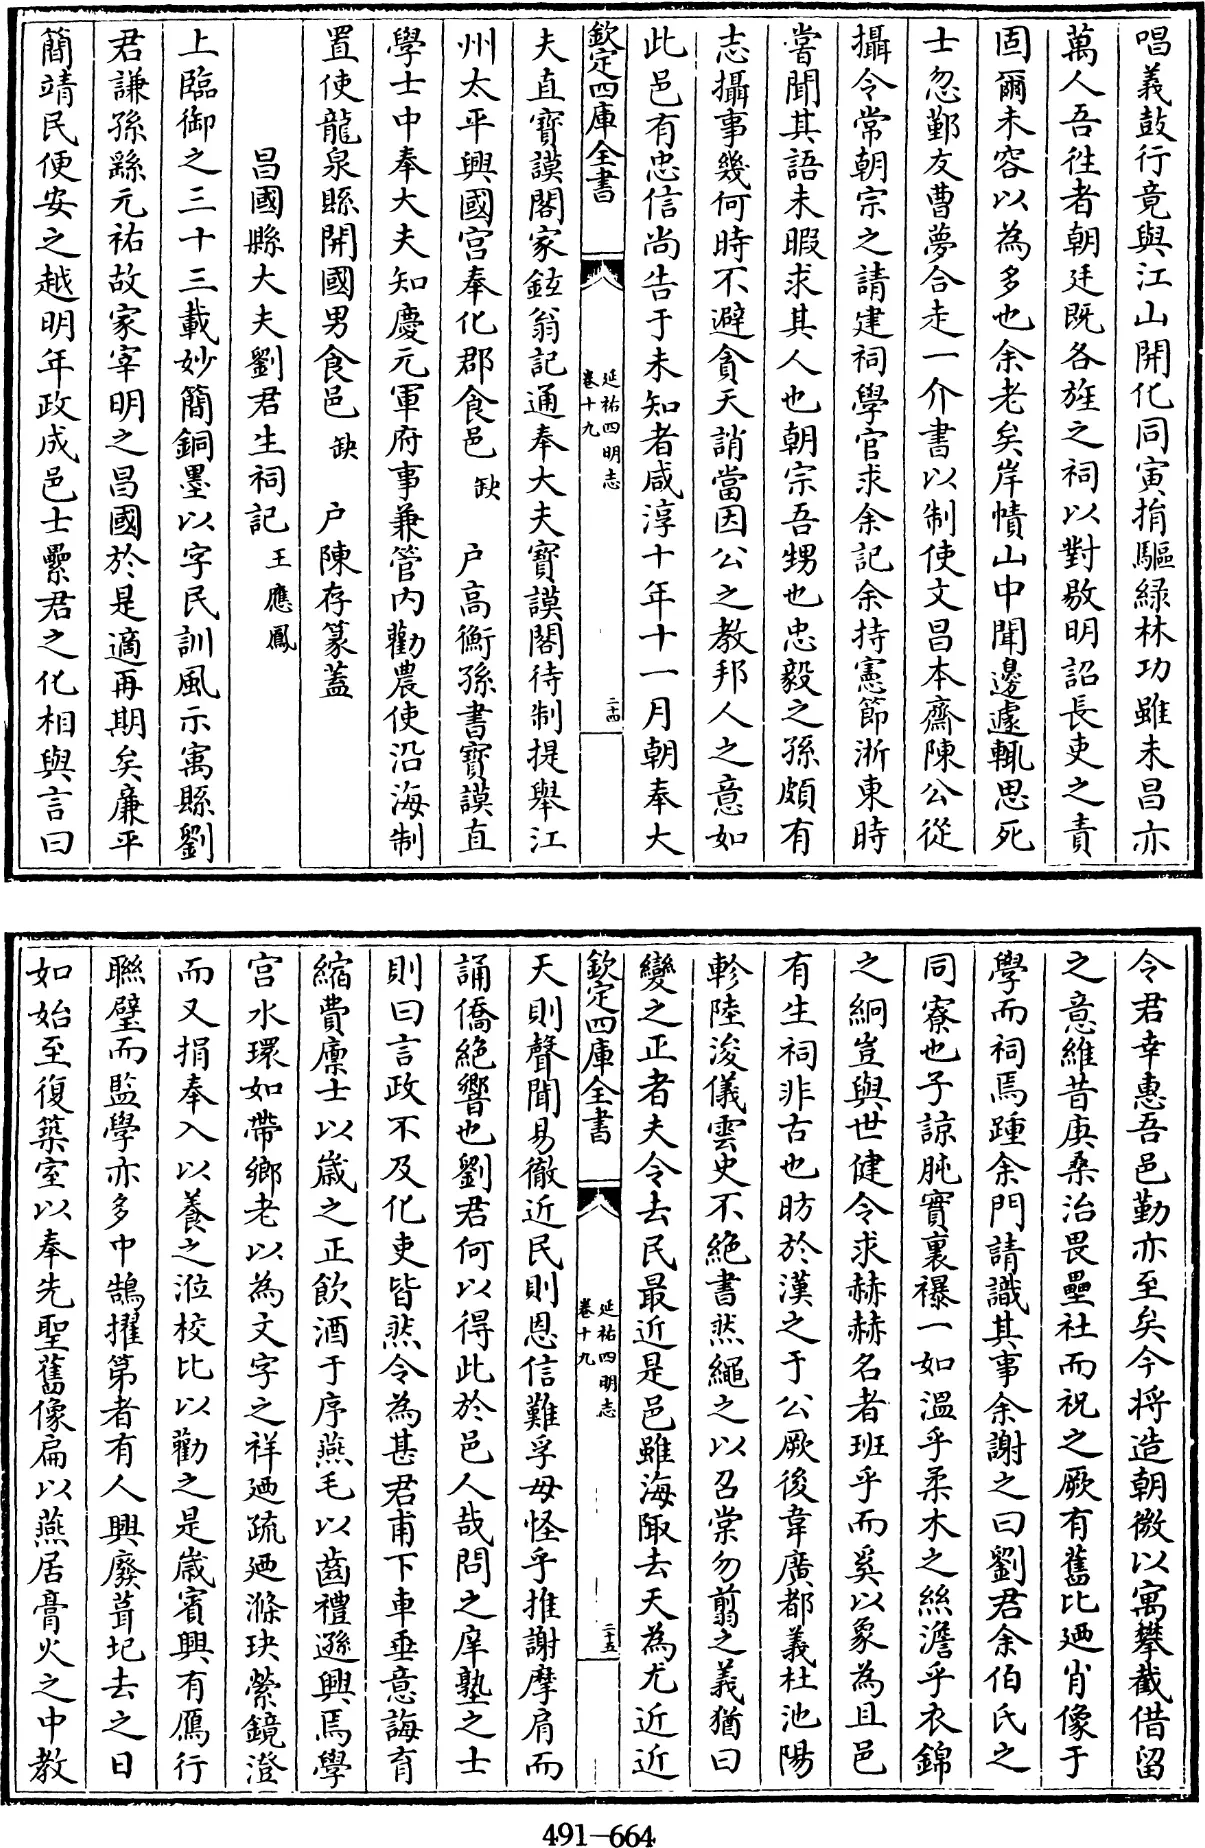 唱義鼓行竟與江山開化同寅捐驅緑林功雖未昌亦
萬人吾徃者朝廷既各旌之祠以對敭明詔長吏之責
固爾未容以為多也余老矣岸幘山中聞邊遽輒思死
士忽鄞友曹夢合走一介書以制使文昌本齋陳公從
攝令常朝宗之請建祠學官求余記余持憲節浙東時
嘗聞其語未暇求其人也朝宗吾甥也忠毅之孫頗有
志攝事幾何時不避貪天誚當因公之教邦人之意如
此邑有忠信尚告于未知者咸淳十年十一月朝奉大
欽定四庫全書
延祐四明志
卷十九
二十四
夫直寳謨閣家鉉翁記通奉大夫寳謨閣待制提舉江
州太平興國宫奉化郡食邑缺 户高衡孫書寳謨直
學士中奉大夫知慶元軍府事兼管内勸農使沿海制
置使龍泉縣開國男食邑缺 户陳存篆蓋
昌國縣大夫劉君生祠記王應鳳
上臨御之三十三載妙簡銅墨以字民訓風示寓縣劉
君謙孫繇元祐故家宰明之昌國於是適再期矣亷平
簡靖民便安之越明年政成邑士纍君之化相與言曰
令君幸惠吾邑勤亦至矣今将造朝微以寓攀截借留
之意維昔庚桑治畏壘社而祝之厥有舊比廼肖像于
學而祠焉踵余門請識其事余謝之曰劉君余伯氏之
同寮也子諒肫實裏襮一如温乎柔木之絲澹乎衣錦
之絅豈與世健令求赫赫名者班乎而奚以象為且邑
有生祠非古也昉於漢之于公厥後韋廣都義杜池陽
軫陸浚儀雲史不絶書然繩之以召棠勿翦之義猶曰
變之正者夫令去民最近是邑雖海陬去天為尤近近
欽定四庫全書
延祐四明志
卷十九
二十五
天則聲聞易徹近民則恩信難孚毋怪乎推謝摩肩而
誦僑絶響也劉君何以得此於邑人哉問之庠塾之士
則曰言政不及化吏皆然令為甚君甫下車垂意誨育
縮費廪士以嵗之正飲酒于序燕毛以齒禮遜興焉學
宫水環如帶鄉老以為文字之祥廼疏廼滌玦縈鏡澄
而又捐奉入以養之涖校比以勸之是嵗賓興有鴈行
聯璧而監學亦多中鵠擢第者有人興廢葺圮去之日
如始至復築室以奉先聖舊像扁以燕居膏火之中教
491-664